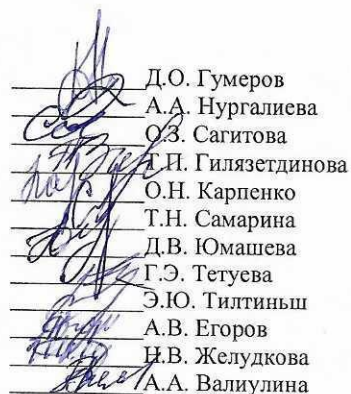 Д.О. Гумеров
А.А. Нургалиева
О.З. Сагитова
Т.П. Гилязетдинова
О.Н. Карпенко
Т.Н. Самарина
Д.В. Юмашева
Г.Э. Тетуева
Э.Ю. Тилтиньш
А.В. Егоров
Н.В. Желудкова
А.А. Валиулина